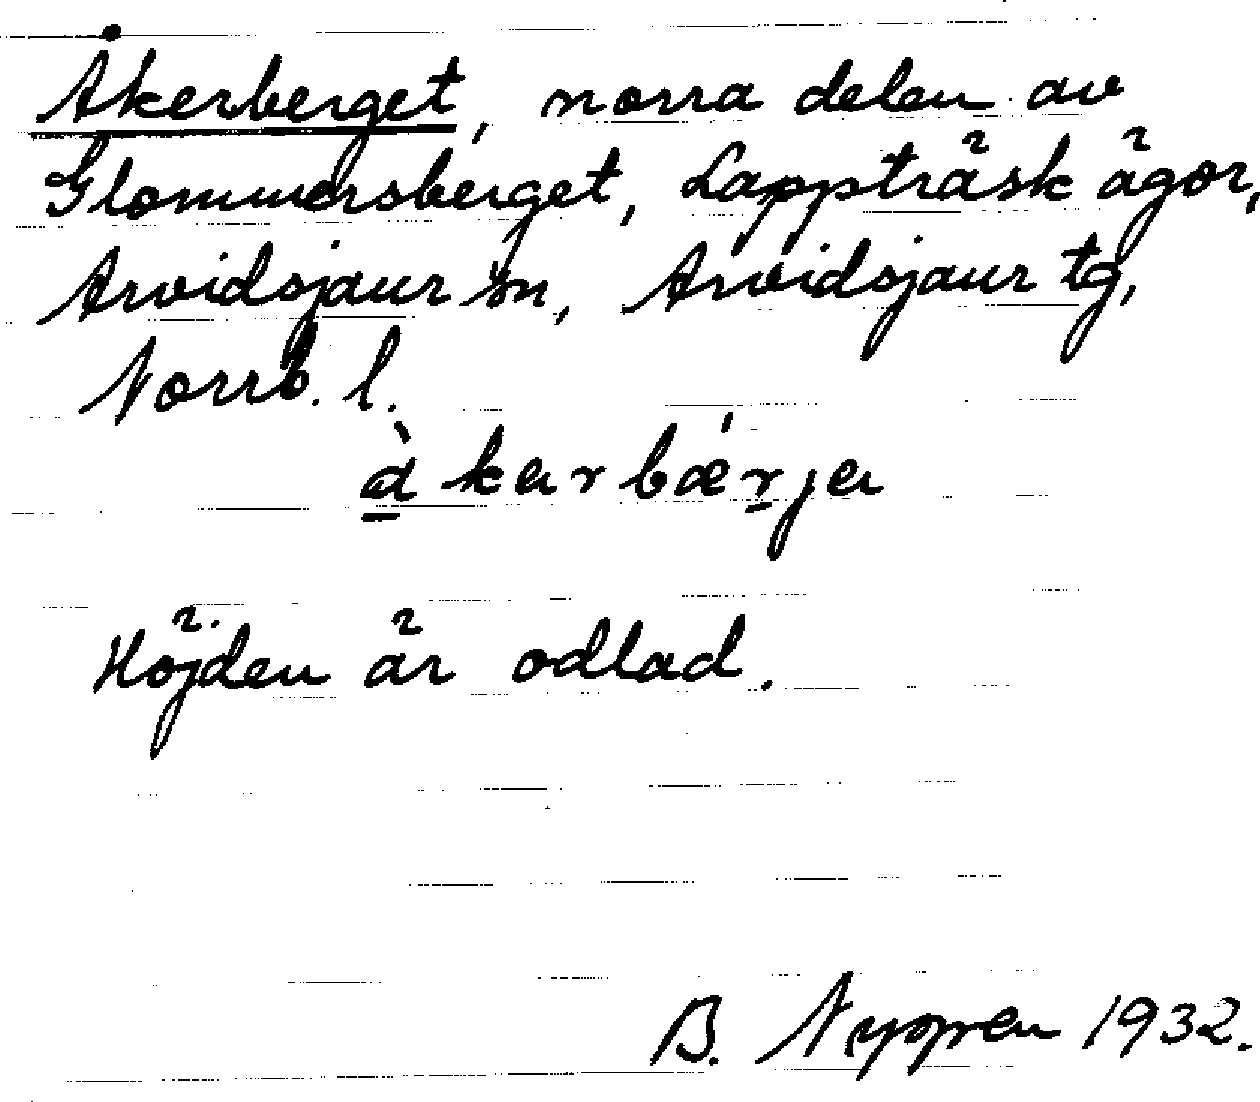 Åkerberget, norra delen av
Glommersberget, Lappträsk ägor,
Arvidsjaur sn, Arvidsjaur tg,
Norrb. l.
àkerbǽrje
Höjden är odlad.
B. Nyppen 1932.